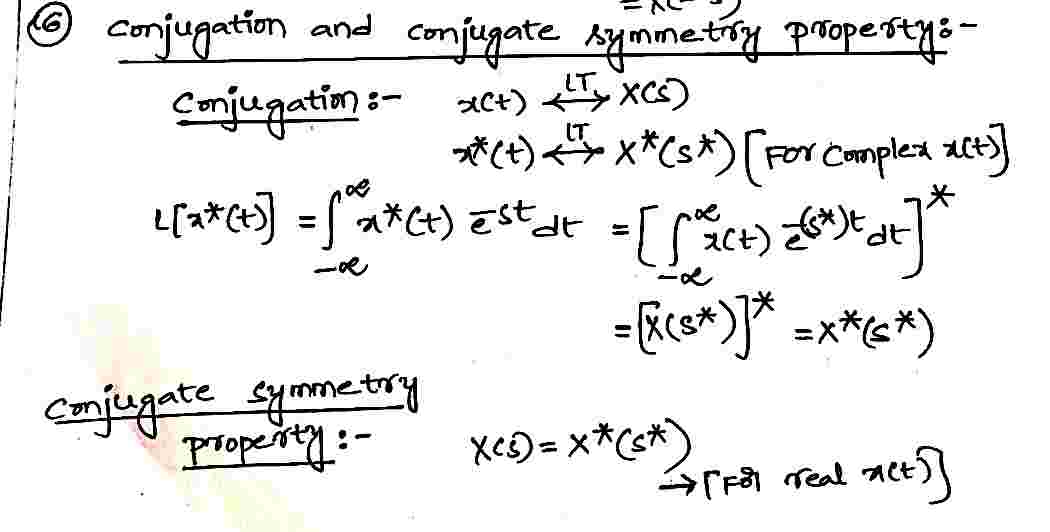 = X(-s)
16 Conjugation and conjugate symmetry property:-
Conjugation:- x(t) ⟷ᴸᵀ X(s)
x*(t) ⟷ᴸᵀ X*(s*) [For complex x(t)]
L[x*(t)] = ∫_{-∞}^{∞} x*(t) e^{-st} dt = [∫_{-∞}^{∞} x(t) e^{-(s*)t} dt]*
= [X(s*)]* = X*(s*)
Conjugate symmetry
property:- X(s) = X*(s*)
→ [For real x(t)]